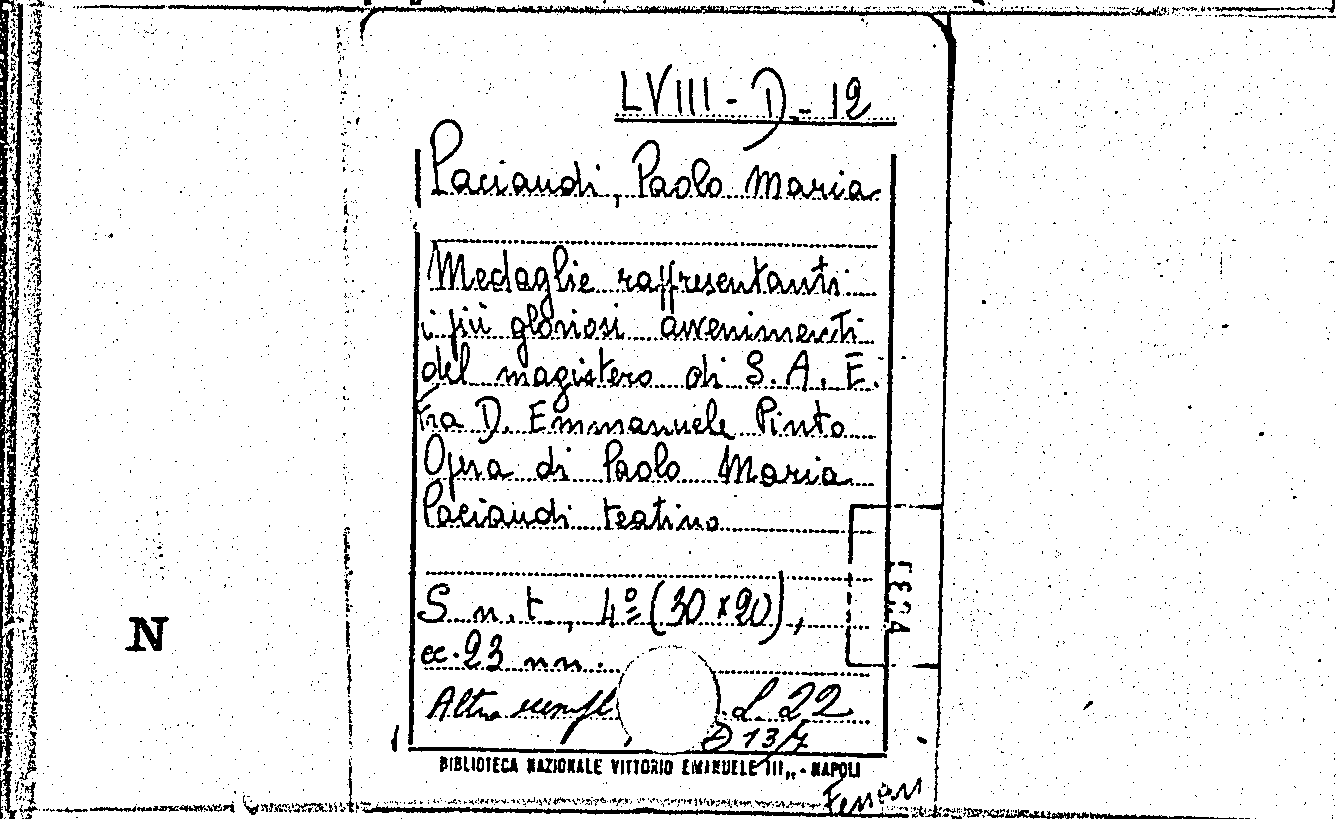 LVIII - D - 12
Paciaudi, Paolo Maria
Medaglie raffresentanti
i più gloriosi avvenimenti
del magistero di S. A. E.
Fra D. Emmanuele Pinto
Opera di Paolo Maria
Paciaudi teatino
S. n. t., 4º (30 x 20),
cc. 23 nn.
L. 22
D 13/7
BIBLIOTECA NAZIONALE VITTORIO EMANUELE III,, - NAPOLI
N